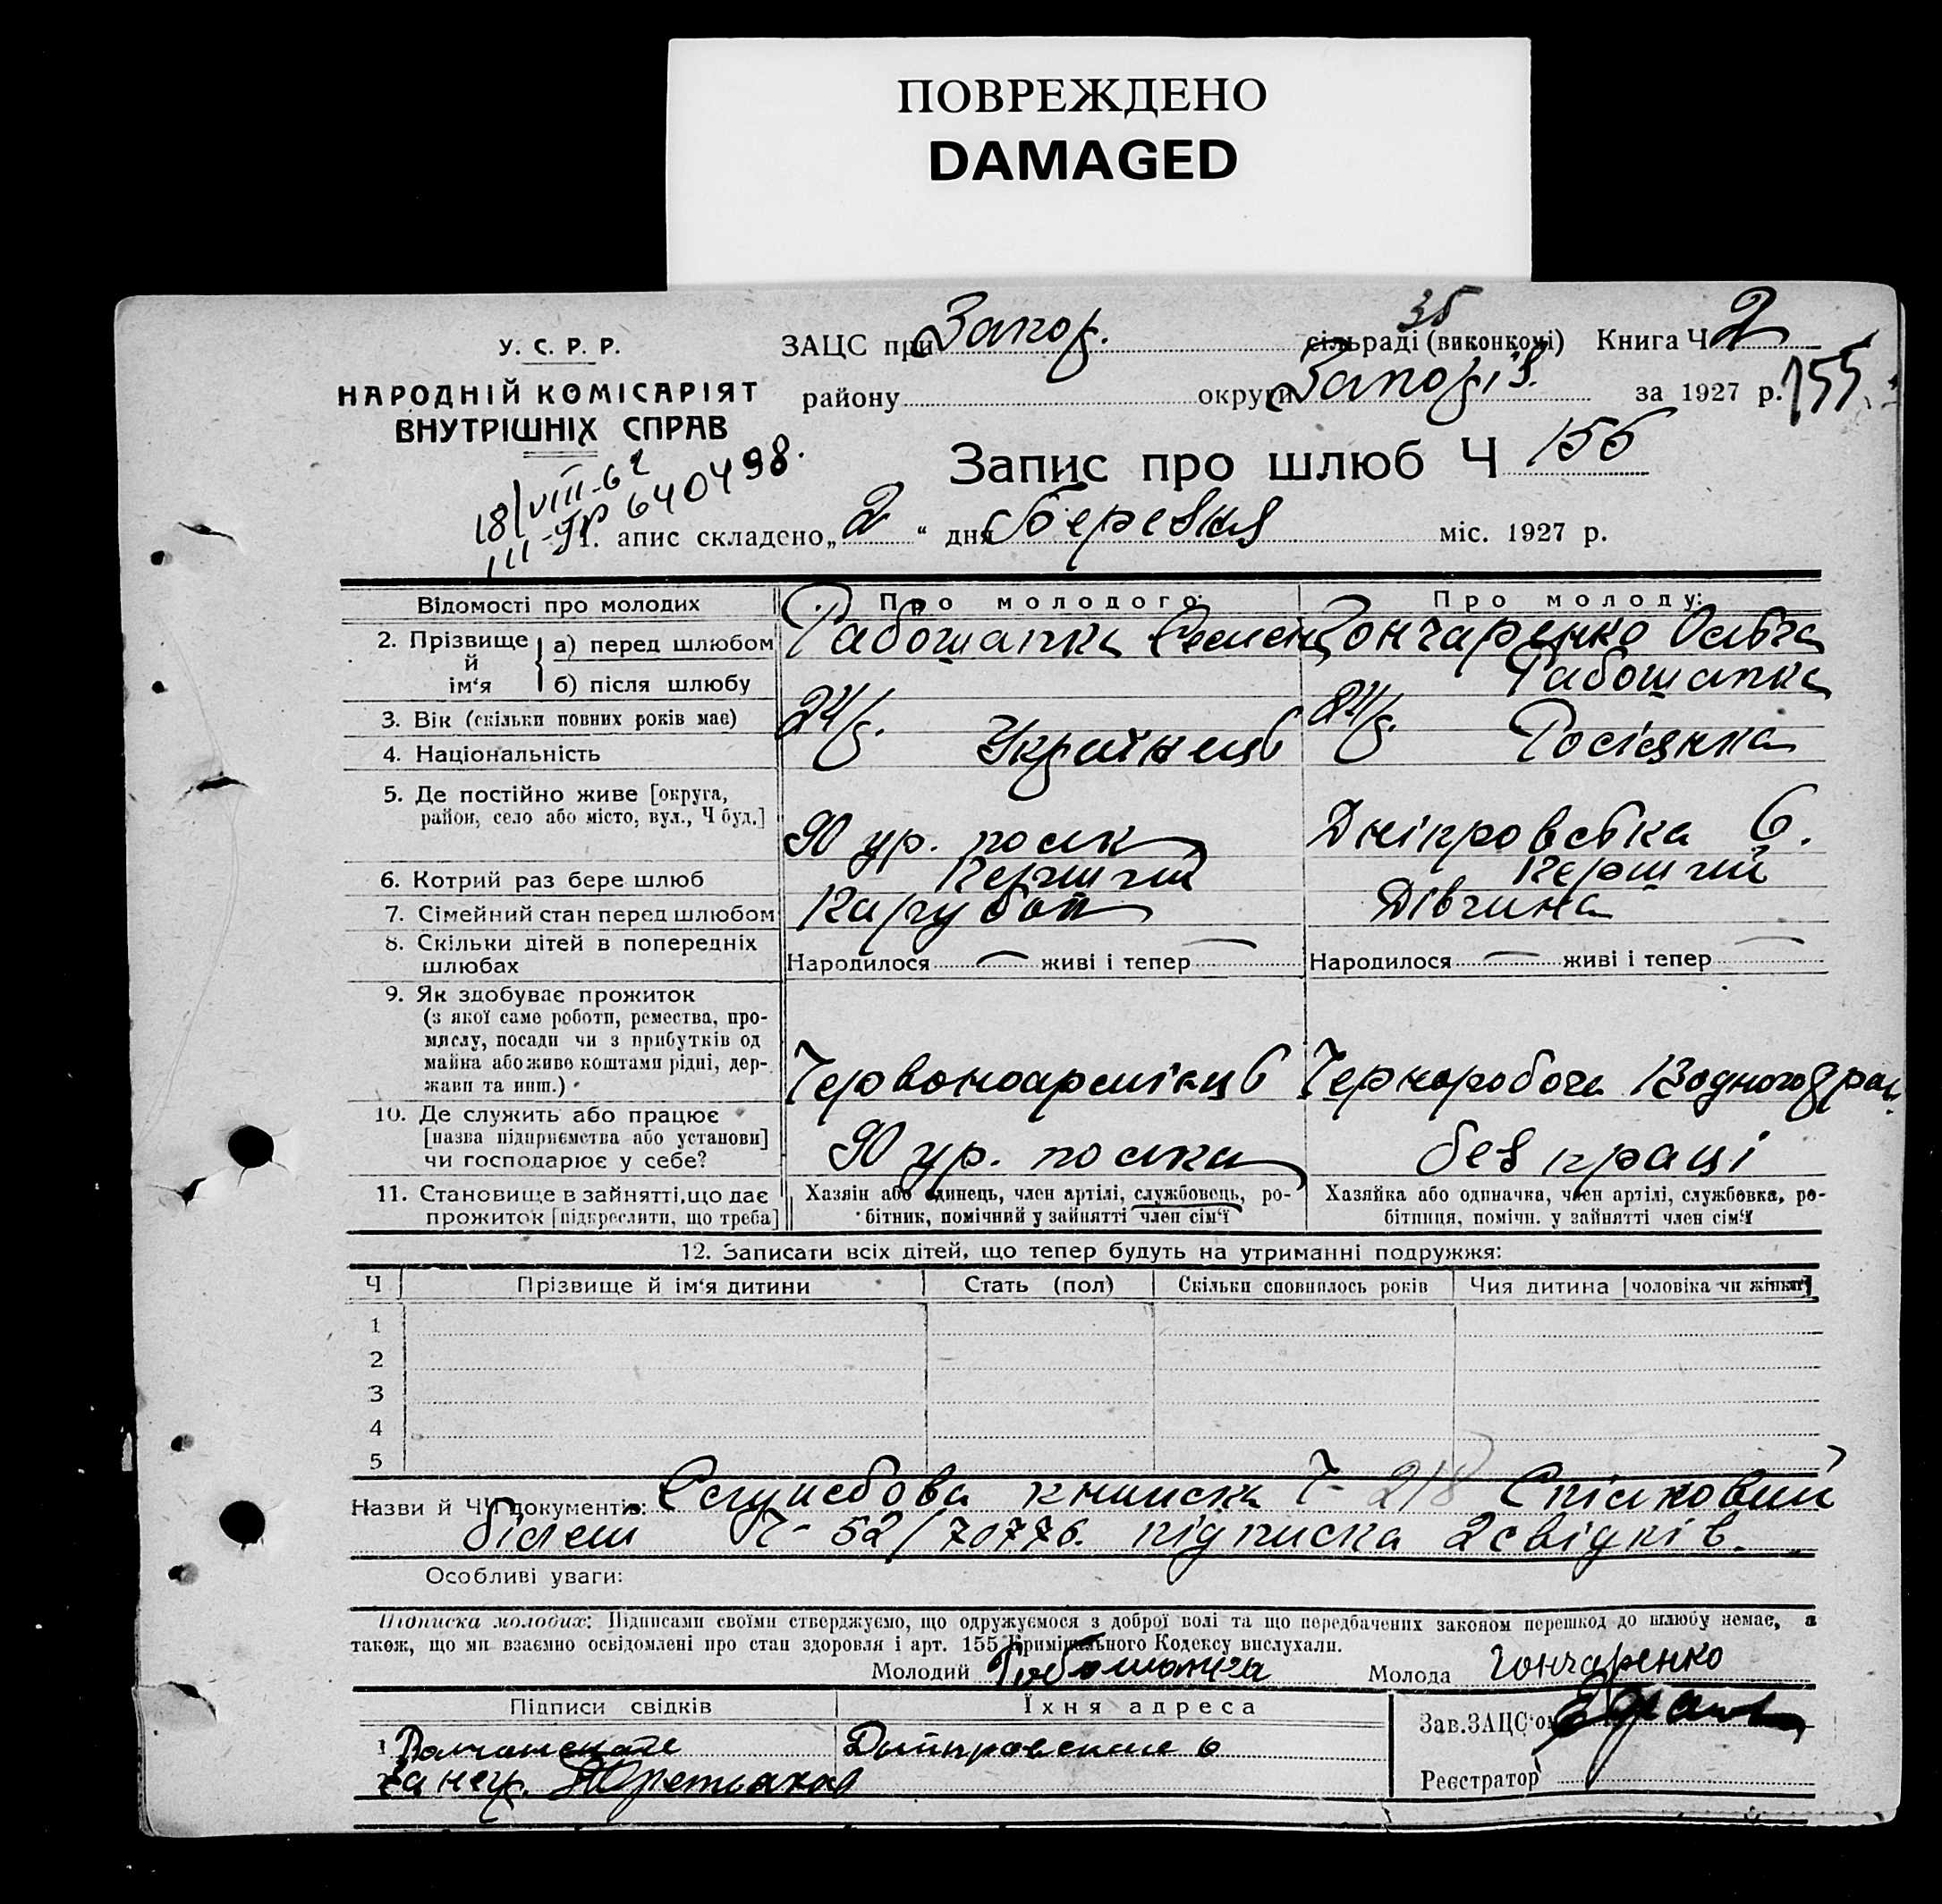 ПОВРЕЖДЕНО
DAMAGED
У. С. Р. Р.
НАРОДНІЙ КОМІСАРІЯТ
ВНУТРІШНІХ СПРАВ
18/VIII-62
III-ЯР 640498.
ЗАЦС при Запор. сільраді (виконкомі) Книга Ч 2
району округи Запоріз. за 1927 р. 155
Запис про шлюб Ч 155
1. апис складено „2“ дня березня міс. 1927 р.
Відомості про молодих Про молодого: Про молоду:
2. Прізвище й ім‘я а) перед шлюбом Рабошапка Гончаренко
б) після шлюбу Рабошапка
3. Вік (скільки повних років має) 24/р. 24/р.
4. Національність Українець Росіянка
5. Де постійно живе [округа,
район, село або місто, вул., Ч буд.] 90 ур. полк Дніпровська 6.
6. Котрий раз бере шлюб Перший Перший
7. Сімейний стан перед шлюбом Парубок Дівчина
8. Скільки дітей в попередніх
шлюбах Народилося — живі і тепер — Народилося — живі і тепер —
9. Як здобуває прожиток
(з якої саме роботи, ремества, про-
мислу, посади чи з прибутків од
майна або живе коштами рідні, дер-
жави та инш.) Червоноармієць Чернороботя
10. Де служить або працює
[назва підприємства або установи]
чи господарює у себе? 90 ур. полка без праці
11. Становище в зайнятті, що дає
прожиток [підкреслити, що треба]
Хазяін або одинець, член артілі, службовець, ро-
бітник, помічний у зайнятті член сім‘ї
Хазяйка або одиначка, член артілі, службовка, ро-
бітниця, помічн. у зайнятті член сім‘ї
12. Записати всіх дітей, що тепер будуть на утриманні подружжя:
Ч Прізвище й ім‘я дитини Стать (пол) Скільки сповнилось років Чия дитина [чоловіка чи жінки]
1
2
3
4
5
Назви й ЧЧ документів: Служебова книжка Ч- 218 Спілковий
білет Ч- 52/70776. підписка 2 свідків.
Особливі уваги:
Підписка молодих: Підписами своїми стверджуємо, що одружуємося з доброї волі та що передбачених законом перешкод до шлюбу немає, а
також, що ми взаємно освідомлені про стан здоровля і арт. 155 Кримінального Кодексу вислухали.
Молодий Рабошапка Молода Гончаренко
Підписи свідків Їхня адреса
Зав.ЗАЦС‘ом
1 6
Реєстратор